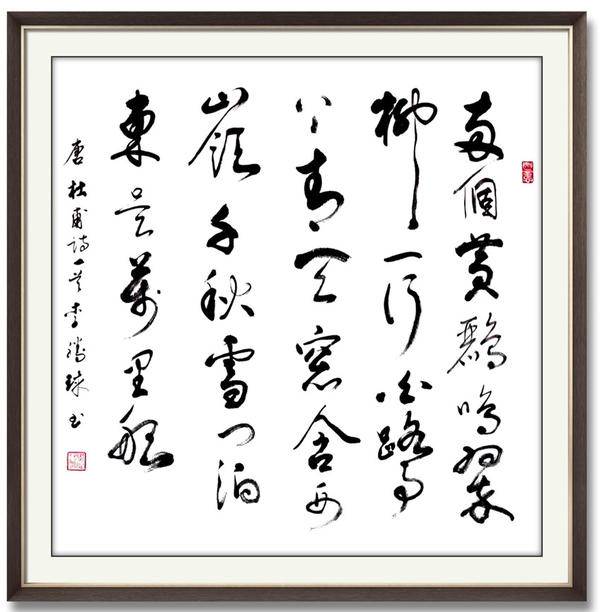 兩個黃鸝鳴翠
柳一行白鷺
上青天窓含西
嶺千秋雪门泊
東吴萬里船
唐杜甫詩一首李騰球书